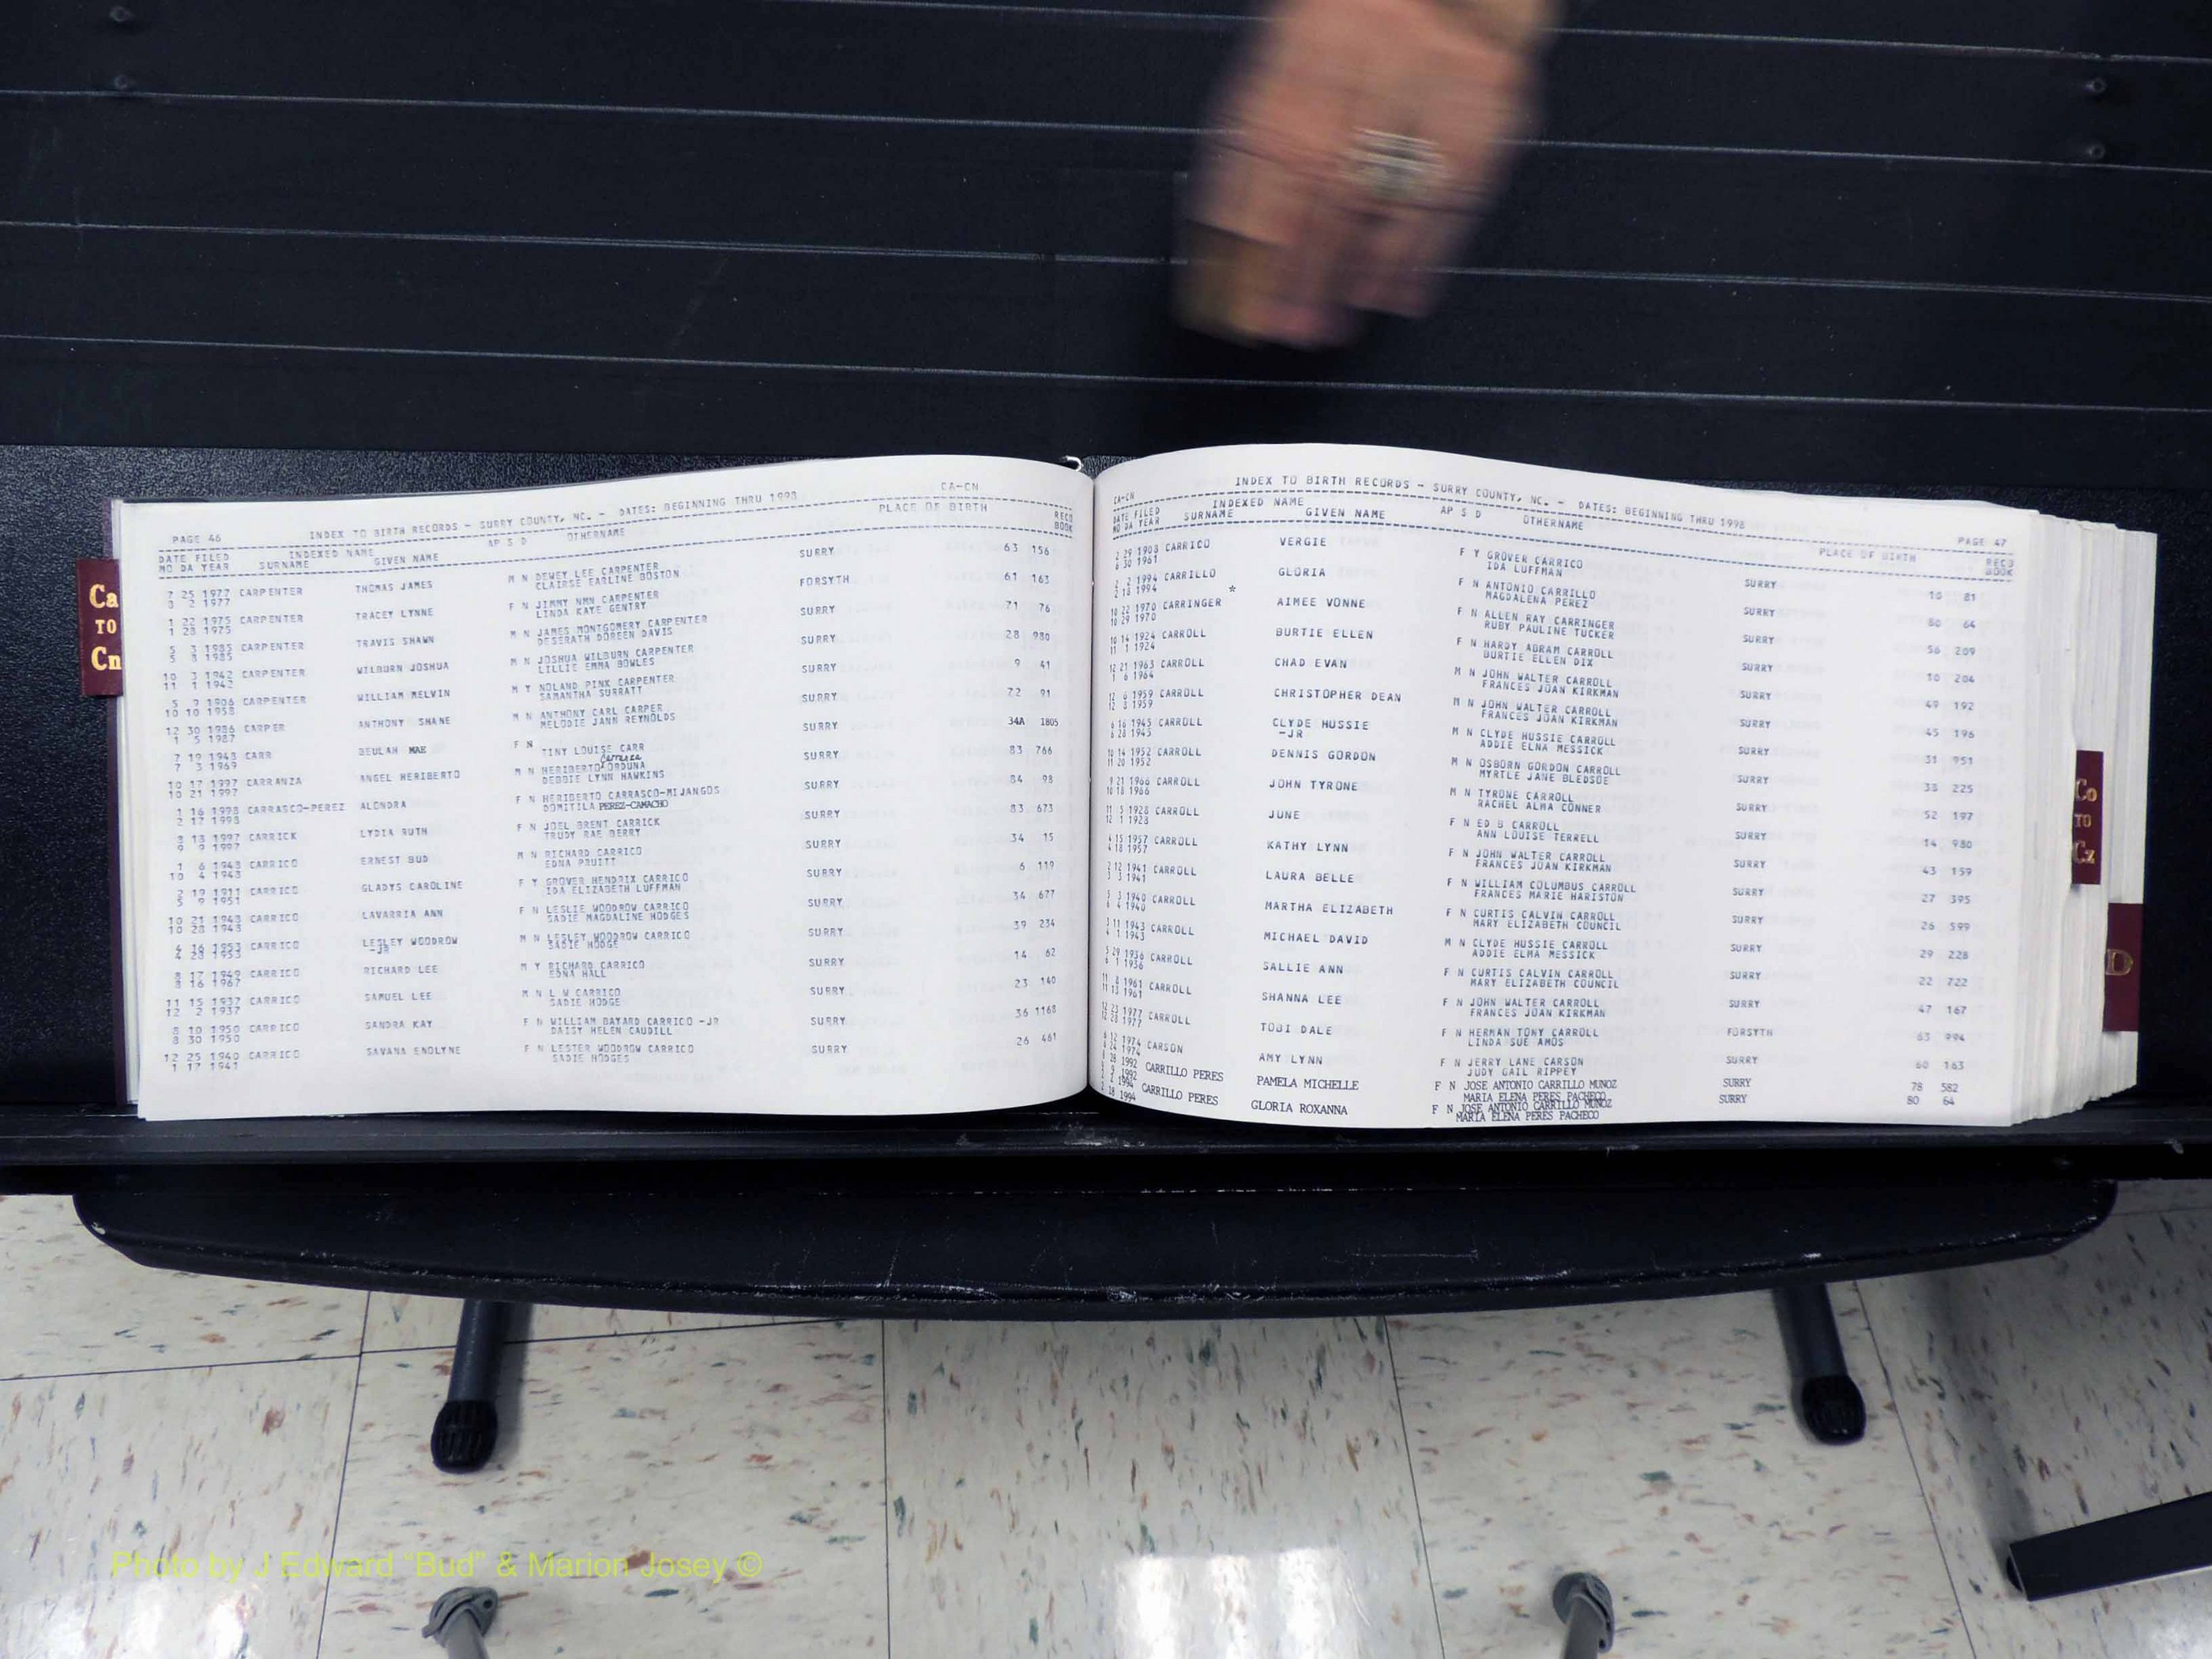 Ca
TO
Cn
PAGE 46 INDEX TO BIRTH RECORDS - SURRY COUNTY, NC. - DATES: BEGINNING THRU 1998 CA-CN
DATE FILED INDEXED NAME AP S D OTHERNAME PLACE OF BIRTH RECD
MO DA YEAR SURNAME GIVEN NAME BOOK
7 25 1977 CARPENTER THOMAS JAMES M N DEWEY LEE CARPENTER SURRY 63 156
8 2 1977 CLAIRSE EARLINE BOSTON
1 22 1975 CARPENTER TRACEY LYNNE F N JIMMY NMN CARPENTER FORSYTH 61 163
1 28 1975 LINDA KAYE GENTRY
5 3 1985 CARPENTER TRAVIS SHAWN M N JAMES MONTGOMERY CARPENTER SURRY 71 76
5 8 1985 DESERATH DOREEN DAVIS
10 3 1942 CARPENTER WILBURN JOSHUA M N JOSHUA WILBURN CARPENTER SURRY 28 980
11 1 1942 LILLIE EMMA BOWLES
5 9 1906 CARPENTER WILLIAM MELVIN M Y NOLAND PINK CARPENTER SURRY 9 41
10 10 1958 SAMANTHA SURRATT
12 30 1986 CARPER ANTHONY SHANE M N ANTHONY CARL CARPER SURRY 72 91
1 5 1987 MELODIE JANN REYNOLDS
7 19 1948 CARR BEULAH MAE F N TINY LOUISE CARR SURRY 34A 1805
7 3 1969
Carranza
10 17 1997 CARRANZA ANGEL HERIBERTO M N HERIBERTO ORDUNA SURRY 83 766
10 21 1997 DEBBIE LYNN HAWKINS
1 16 1998 CARRASCO-PEREZ ALONDRA F N HERIBERTO CARRASCO-MIJANGOS SURRY 84 98
2 17 1998 DOMITILA PEREZ-CAMACHO
8 13 1997 CARRICK LYDIA RUTH F N JOEL BRENT CARRICK SURRY 83 673
9 9 1997 TRUDY RAE BERRY
1 6 1948 CARRICO ERNEST BUD M N RICHARD CARRICO SURRY 34 15
10 4 1948 EDNA PRUITT
2 19 1911 CARRICO GLADYS CAROLINE F Y GROVER HENDRIX CARRICO SURRY 6 119
5 9 1951 IDA ELIZABETH LUFFMAN
10 21 1948 CARRICO LAVARRIA ANN F N LESLIE WOODROW CARRICO SURRY 34 677
10 28 1948 SADIE MAGDALINE HODGES
4 16 1953 CARRICO LESLEY WOODROW M N LESLEY WOODROW CARRICO SURRY 39 234
4 28 1953 -JR SADIE HODGE
8 17 1949 CARRICO RICHARD LEE M Y RICHARD CARRICO SURRY 14 62
8 16 1967 EDNA HALL
11 15 1937 CARRICO SAMUEL LEE M N L W CARRICO SURRY 23 140
12 2 1937 SADIE HODGE
8 10 1950 CARRICO SANDRA KAY F N WILLIAM BAYARD CARRICO -JR SURRY 36 1168
8 30 1950 DAISY HELEN CAUDILL
12 25 1940 CARRICO SAVANA ENOLYNE F N LESTER WOODROW CARRICO SURRY 26 461
1 17 1941 SADIE HODGES
CA-CN INDEX TO BIRTH RECORDS - SURRY COUNTY, NC. - DATES: BEGINNING THRU 1998 PAGE 47
DATE FILED INDEXED NAME AP S D OTHERNAME PLACE OF BIRTH RECD
MO DA YEAR SURNAME GIVEN NAME BOOK
2 29 1908 CARRICO VERGIE F Y GROVER CARRICO SURRY 10 81
6 30 1961 IDA LUFFMAN
2 2 1994 CARRILLO GLORIA F N ANTONIO CARRILLO SURRY 80 64
2 18 1994 * MAGDALENA PEREZ
10 22 1970 CARRINGER AIMEE VONNE F N ALLEN RAY CARRINGER SURRY 56 209
10 29 1970 RUBY PAULINE TUCKER
10 14 1924 CARROLL BURTIE ELLEN F N HARDY ABRAM CARROLL SURRY 10 204
11 1 1924 BURTIE ELLEN DIX
12 21 1963 CARROLL CHAD EVAN M N JOHN WALTER CARROLL SURRY 49 192
1 6 1964 FRANCES JOAN KIRKMAN
12 6 1959 CARROLL CHRISTOPHER DEAN M N JOHN WALTER CARROLL SURRY 45 196
12 8 1959 FRANCES JOAN KIRKMAN
6 16 1945 CARROLL CLYDE HUSSIE M N CLYDE HUSSIE CARROLL SURRY 31 951
6 28 1945 -JR ADDIE ELNA MESSICK
10 14 1952 CARROLL DENNIS GORDON M N OSBORN GORDON CARROLL SURRY 38 225
11 20 1952 MYRTLE JANE BLEDSOE
9 21 1966 CARROLL JOHN TYRONE M N TYRONE CARROLL SURRY 52 197
10 18 1966 RACHEL ALMA CONNER
11 5 1928 CARROLL JUNE F N ED B CARROLL SURRY 14 980
12 1 1928 ANN LOUISE TERRELL
4 15 1957 CARROLL KATHY LYNN F N JOHN WALTER CARROLL SURRY 43 159
4 18 1957 FRANCES JOAN KIRKMAN
2 12 1941 CARROLL LAURA BELLE F N WILLIAM COLUMBUS CARROLL SURRY 27 395
3 3 1941 FRANCES MARIE HARISTON
5 3 1940 CARROLL MARTHA ELIZABETH F N CURTIS CALVIN CARROLL SURRY 26 599
6 4 1940 MARY ELIZABETH COUNCIL
3 11 1943 CARROLL MICHAEL DAVID M N CLYDE HUSSIE CARROLL SURRY 29 228
4 1 1943 ADDIE ELMA MESSICK
5 29 1936 CARROLL SALLIE ANN F N CURTIS CALVIN CARROLL SURRY 22 722
6 1 1936 MARY ELIZABETH COUNCIL
11 8 1961 CARROLL SHANNA LEE F N JOHN WALTER CARROLL SURRY 47 167
11 13 1961 FRANCES JOAN KIRKMAN
12 23 1977 CARROLL TOBI DALE F N HERMAN TONY CARROLL FORSYTH 63 994
12 28 1977 LINDA SUE AMOS
6 12 1974 CARSON AMY LYNN F N JERRY LANE CARSON SURRY 60 163
6 24 1974 JUDY GAIL RIPPEY
28 1992 CARRILLO PERES PAMELA MICHELLE F N JOSE ANTONIO CARRILLO MUNOZ SURRY 78 582
9 1992 MARIA ELENA PERES PACHECO
2 1994 CARRILLO PERES GLORIA ROXANNA F N JOSE ANTONIO CARRILLO MUNOZ SURRY 80 64
18 1994 MARIA ELENA PERES PACHECO
Co
TO
Cz
D
Photo by J Edward "Bud" & Marion Josey ©